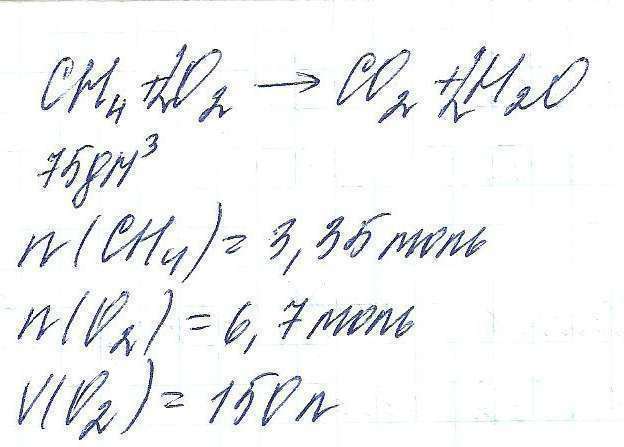 CH₄ + 2O₂ → CO₂ + 2H₂O
75дм³
n(CH₄) = 3,35 моль
n(O₂) = 6,7 моль
V(O₂) = 150 л